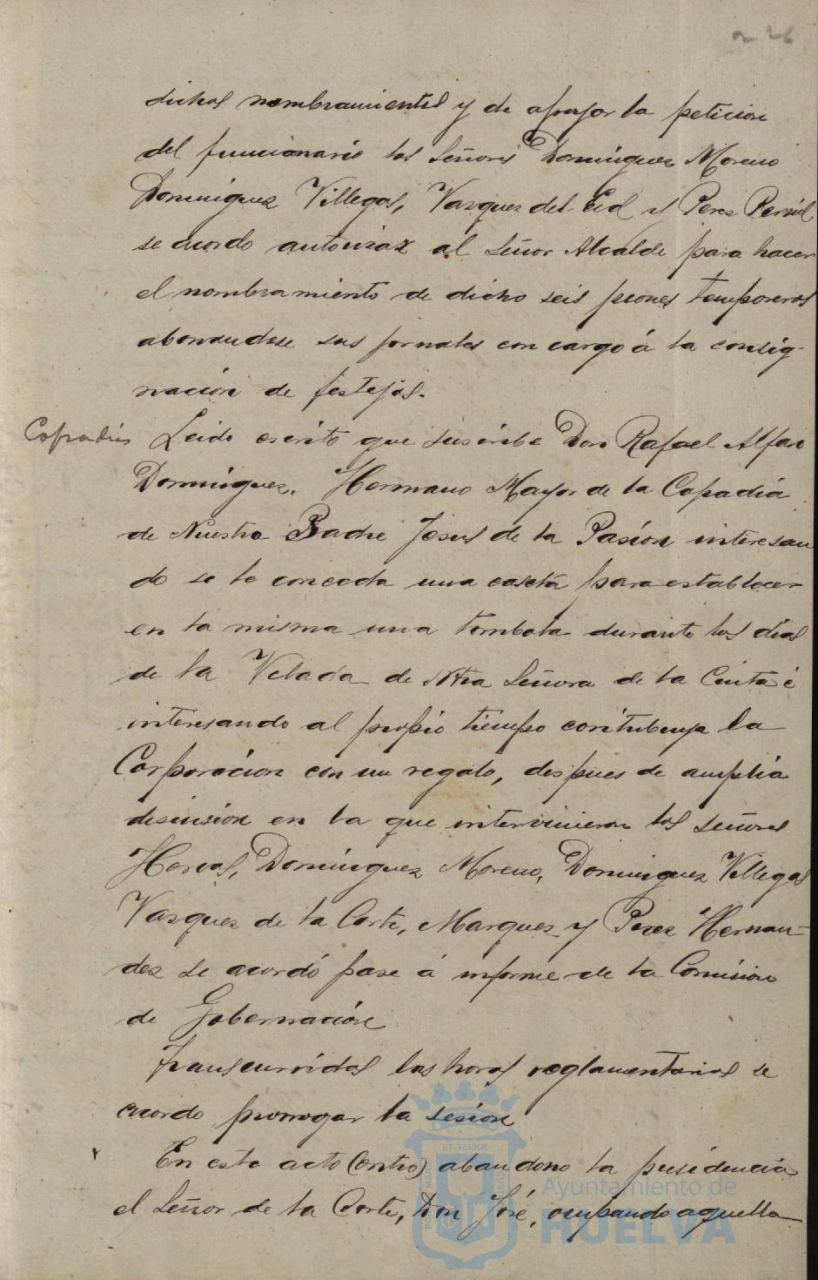 226
dichos nombramientos y de apoyar la peticion
del funcionario los Señores Dominguez Moreno
Dominguez Villegas, Vazquez del Cid y Perez
se acordo autorizar al Señor Alcalde para hacer
el nombramiento de dicho seis peones temporeros
abonandose sus jornales con cargo á la consig-
nación de festejos.
Cofradias
Leido escrito que suscribe Don Rafael Alfaro
Dominguez. Hermano Mayor de la Cofadia
de Nuestro Padre Jesus de la Pasion interesan
do se le conceda una caseta para establecer
en la misma una tombola durante los dias
de la Velada de Ntra Señora de la Cinta é
interesando al propio tiempo contribuya la
Corporacion con un regalo, despues de amplia
discusion en la que intervinieron los Señores
Hervas, Dominguez Moreno, Dominguez Villegas
Vasques de la Corte, Marquez y Perez Hernan-
dez se acordó pase á informe de la Comision
de Gobernación
Transcurridas las horas reglamentarias se
acordo prorrogar la sesion
En este acto (entro) abandono la presidencia
el Señor de la Corte, Don José, ocupando aquella
Ayuntamiento de
HUELVA